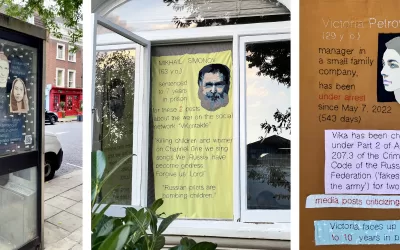 MIKHAIL SIMONOV
(63 y.o.)
sentenced
to 7 years
in prison
for these 2 posts
about the war on the social
network "Vkontakte"
"Killing children and women,
on Channel One we sing
songs. We, Russia, have
become godless.
Forgive us, Lord!"
"Russian pilots are
bombing children."
Victoria Petrov
(29 y.o.)
manager in
a small family
company,
has been
under arrest
since May 7, 2022
(543 days)
Vika has been ch
under Part 2 of A
207.3 of the Crim
Code of the Russ
Federation ('fakes
the army') for two
media posts criticizing
Victoria faces up
to 10 years in p